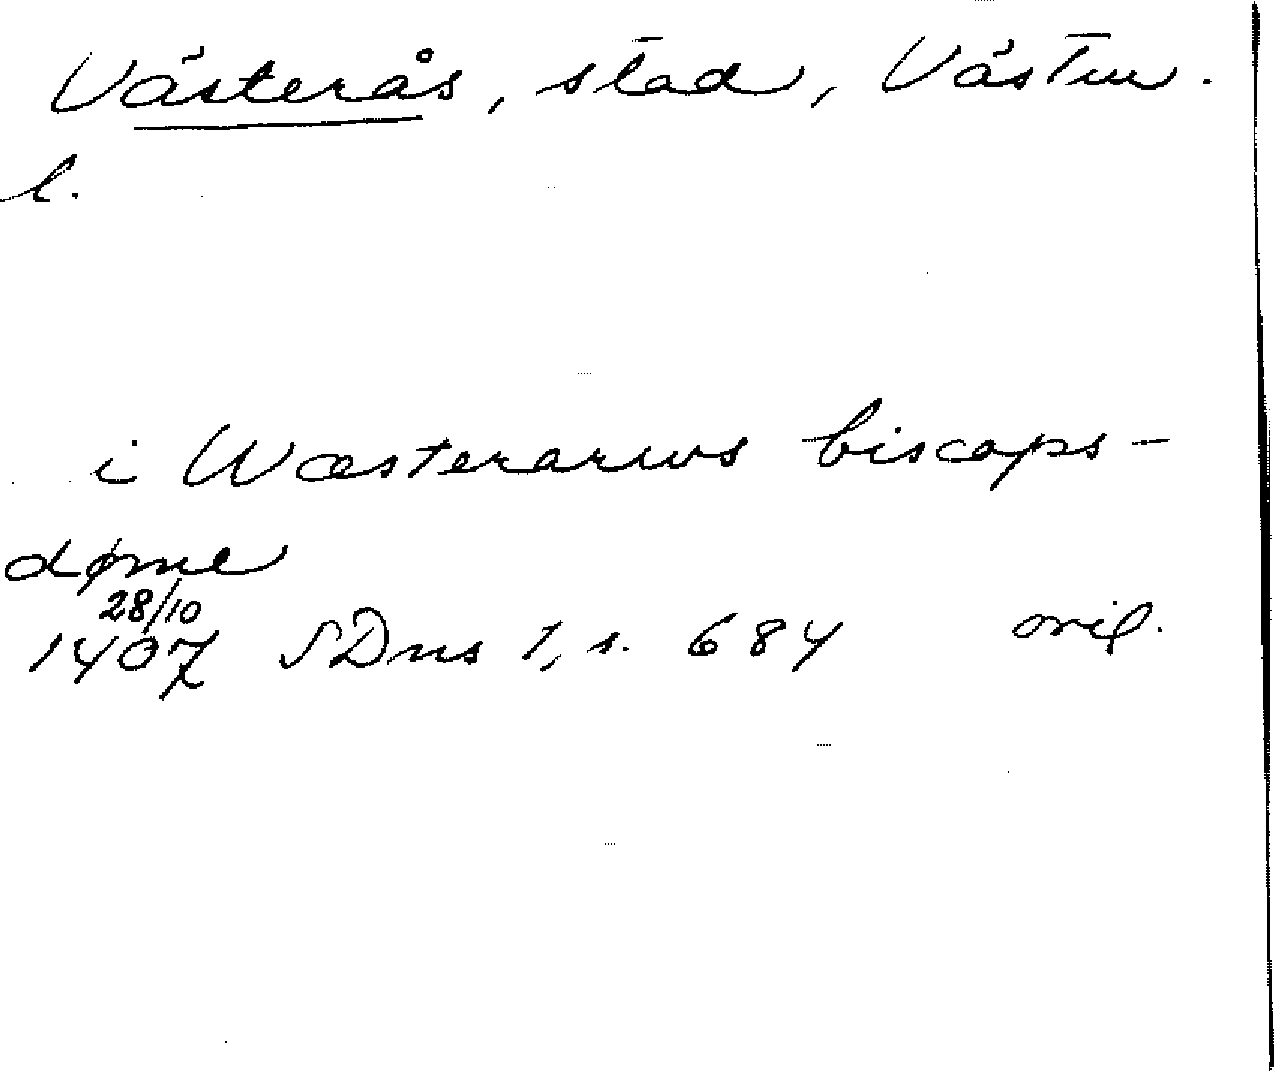 Västerås, stad, Västm.
l.
i Wæsteraruws biscops-
døme
28/10
1407 SDns 1, s. 684 orig.